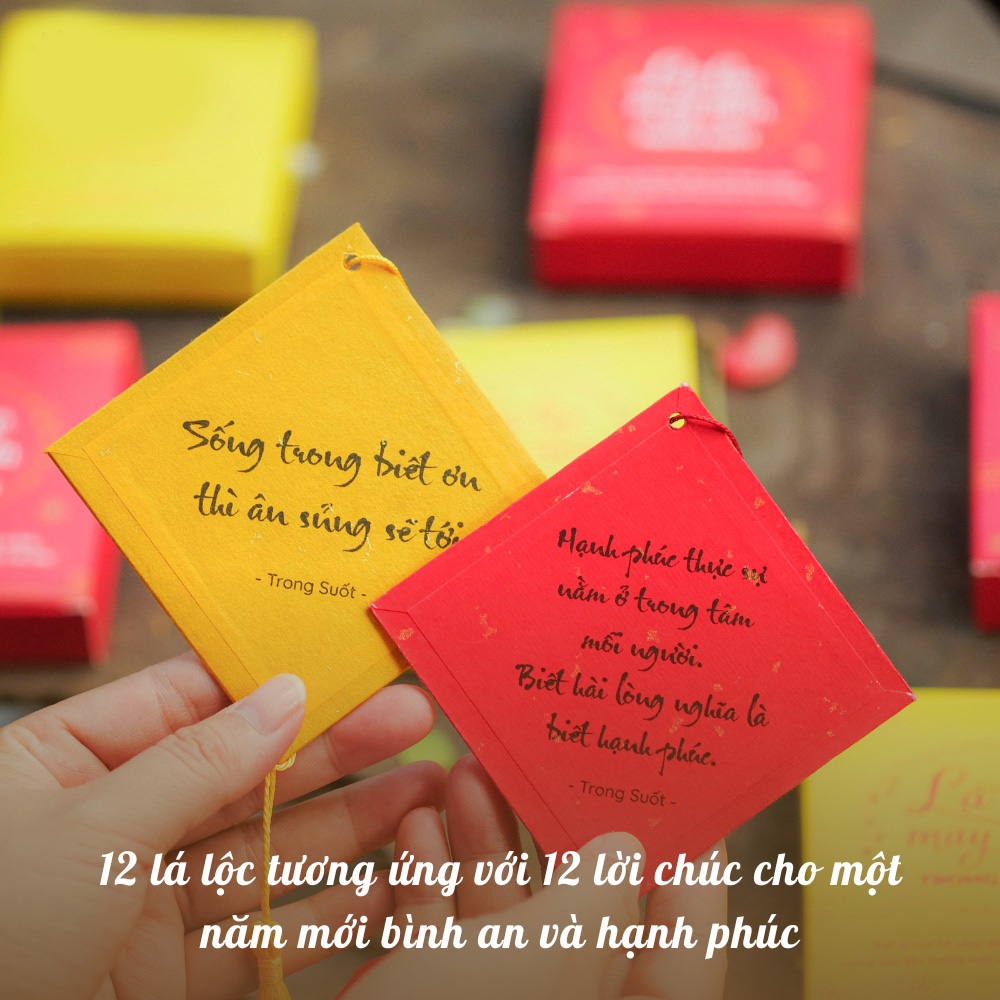 Sống trong biết ơn
thì ân sủng sẽ tới.
- Trong Suốt -
Hạnh phúc thực sự
nằm ở trong tâm
mỗi người.
Biết hài lòng nghĩa là
biết hạnh phúc.
- Trong Suốt -
Lá
may
12 lá lộc tương ứng với 12 lời chúc cho một
năm mới bình an và hạnh phúc